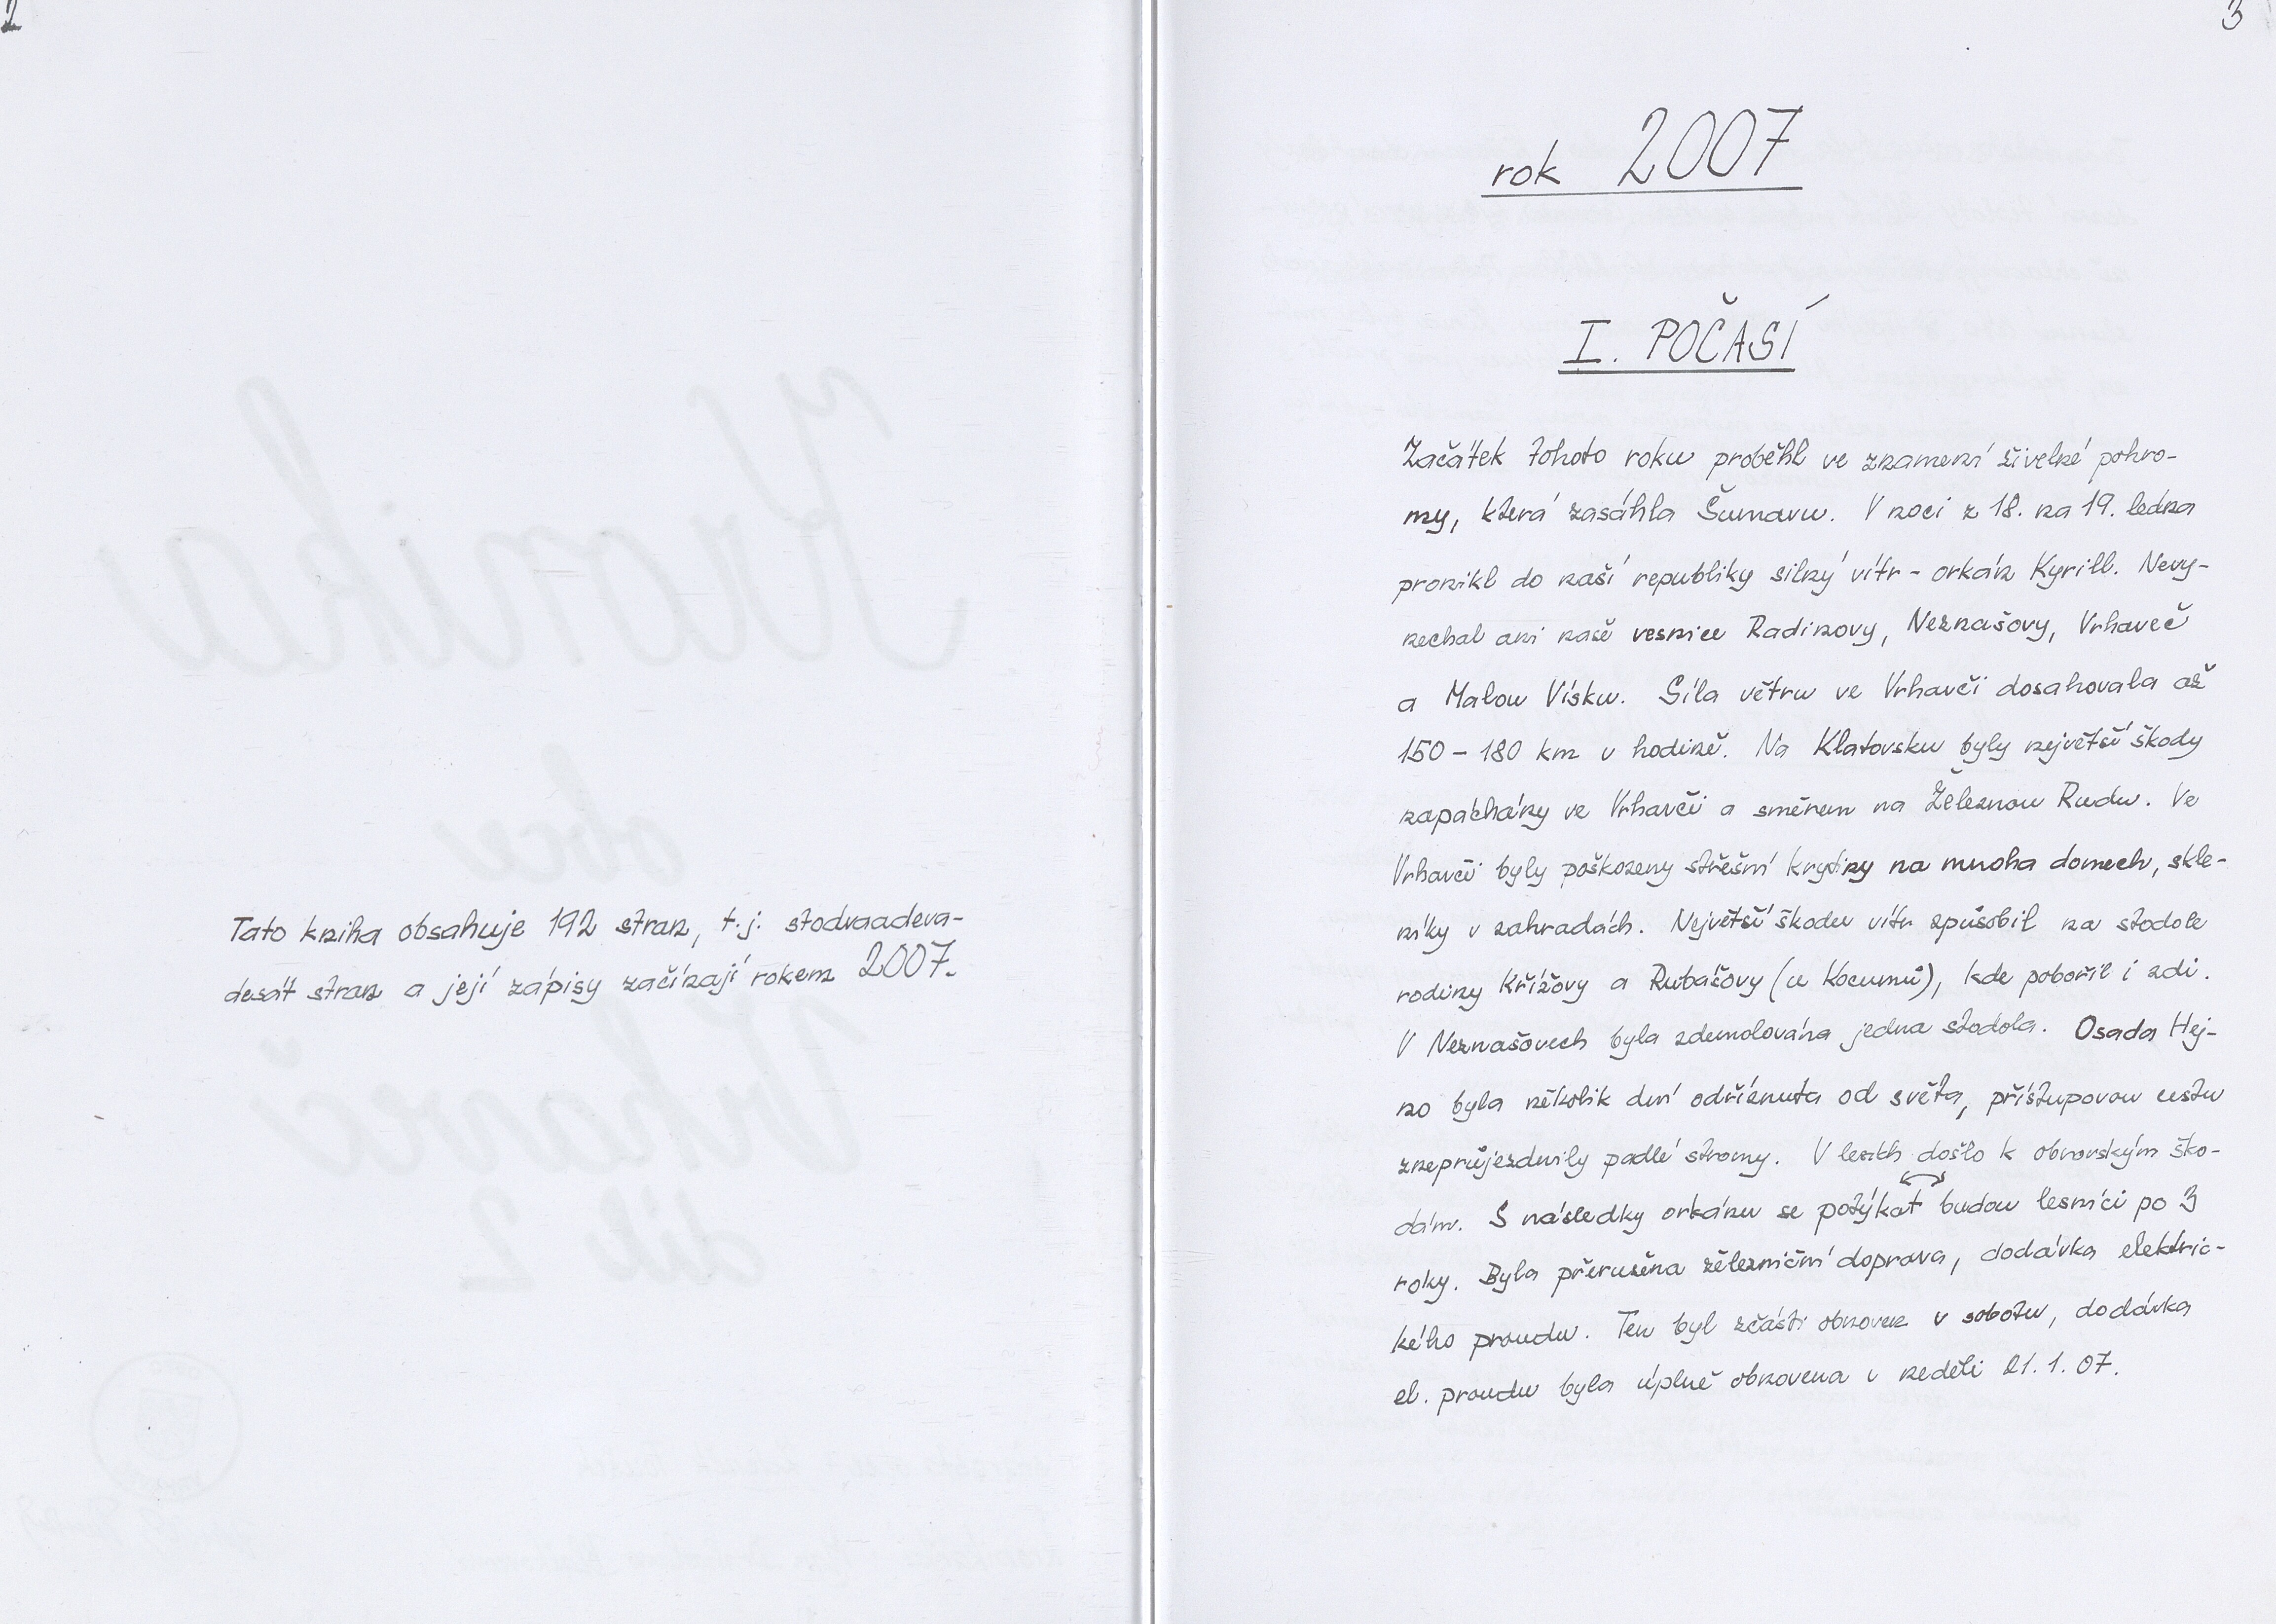 2
Tato kniha obsahuje 192 stran, t.j. stodvaadeva-
desát stran a její zápisy začínají rokem 2007.
3
rok 2007
I. POČASÍ
Začátek tohoto roku proběhl ve znamení živelné pohro-
my, která zasáhla Šumavu. V noci z 18. na 19. ledna
pronikl do naší republiky silný vítr - orkán Kyrill. Nevy-
nechal ani naše vesnice Radinovy, Neznašovy, Vrhaveč
a Malou Vísku. Síla větru ve Vrhavči dosahovala až
150 - 180 km v hodině. Na Klatovsku byly největší škody
napáchány ve Vrhavči a směrem na Železnou Rudu. Ve
Vrhavči byly poškozeny střešní krytiny na mnoha domech, skle-
níky v zahradách. Největší škodu vítr způsobil na stodole
rodiny Křížovy a Rubášovy (u Kocumů), kde pobořil i zdi.
V Neznašovech byla zdemolována jedna stodola. Osada Hej-
no byla několik dní odříznuta od světa, přístupovou cestu
zneprůjezdnily padlé stromy. V lesích došlo k obrovským ško-
dám. S následky orkánu se potýkat budou lesníci po 3
roky. Byla přerušena železniční doprava, dodávka elektric-
kého proudu. Ten byl zčásti obnoven v sobotu, dodávka
el. proudu byla úplně obnovena v neděli 21. 1. 07.